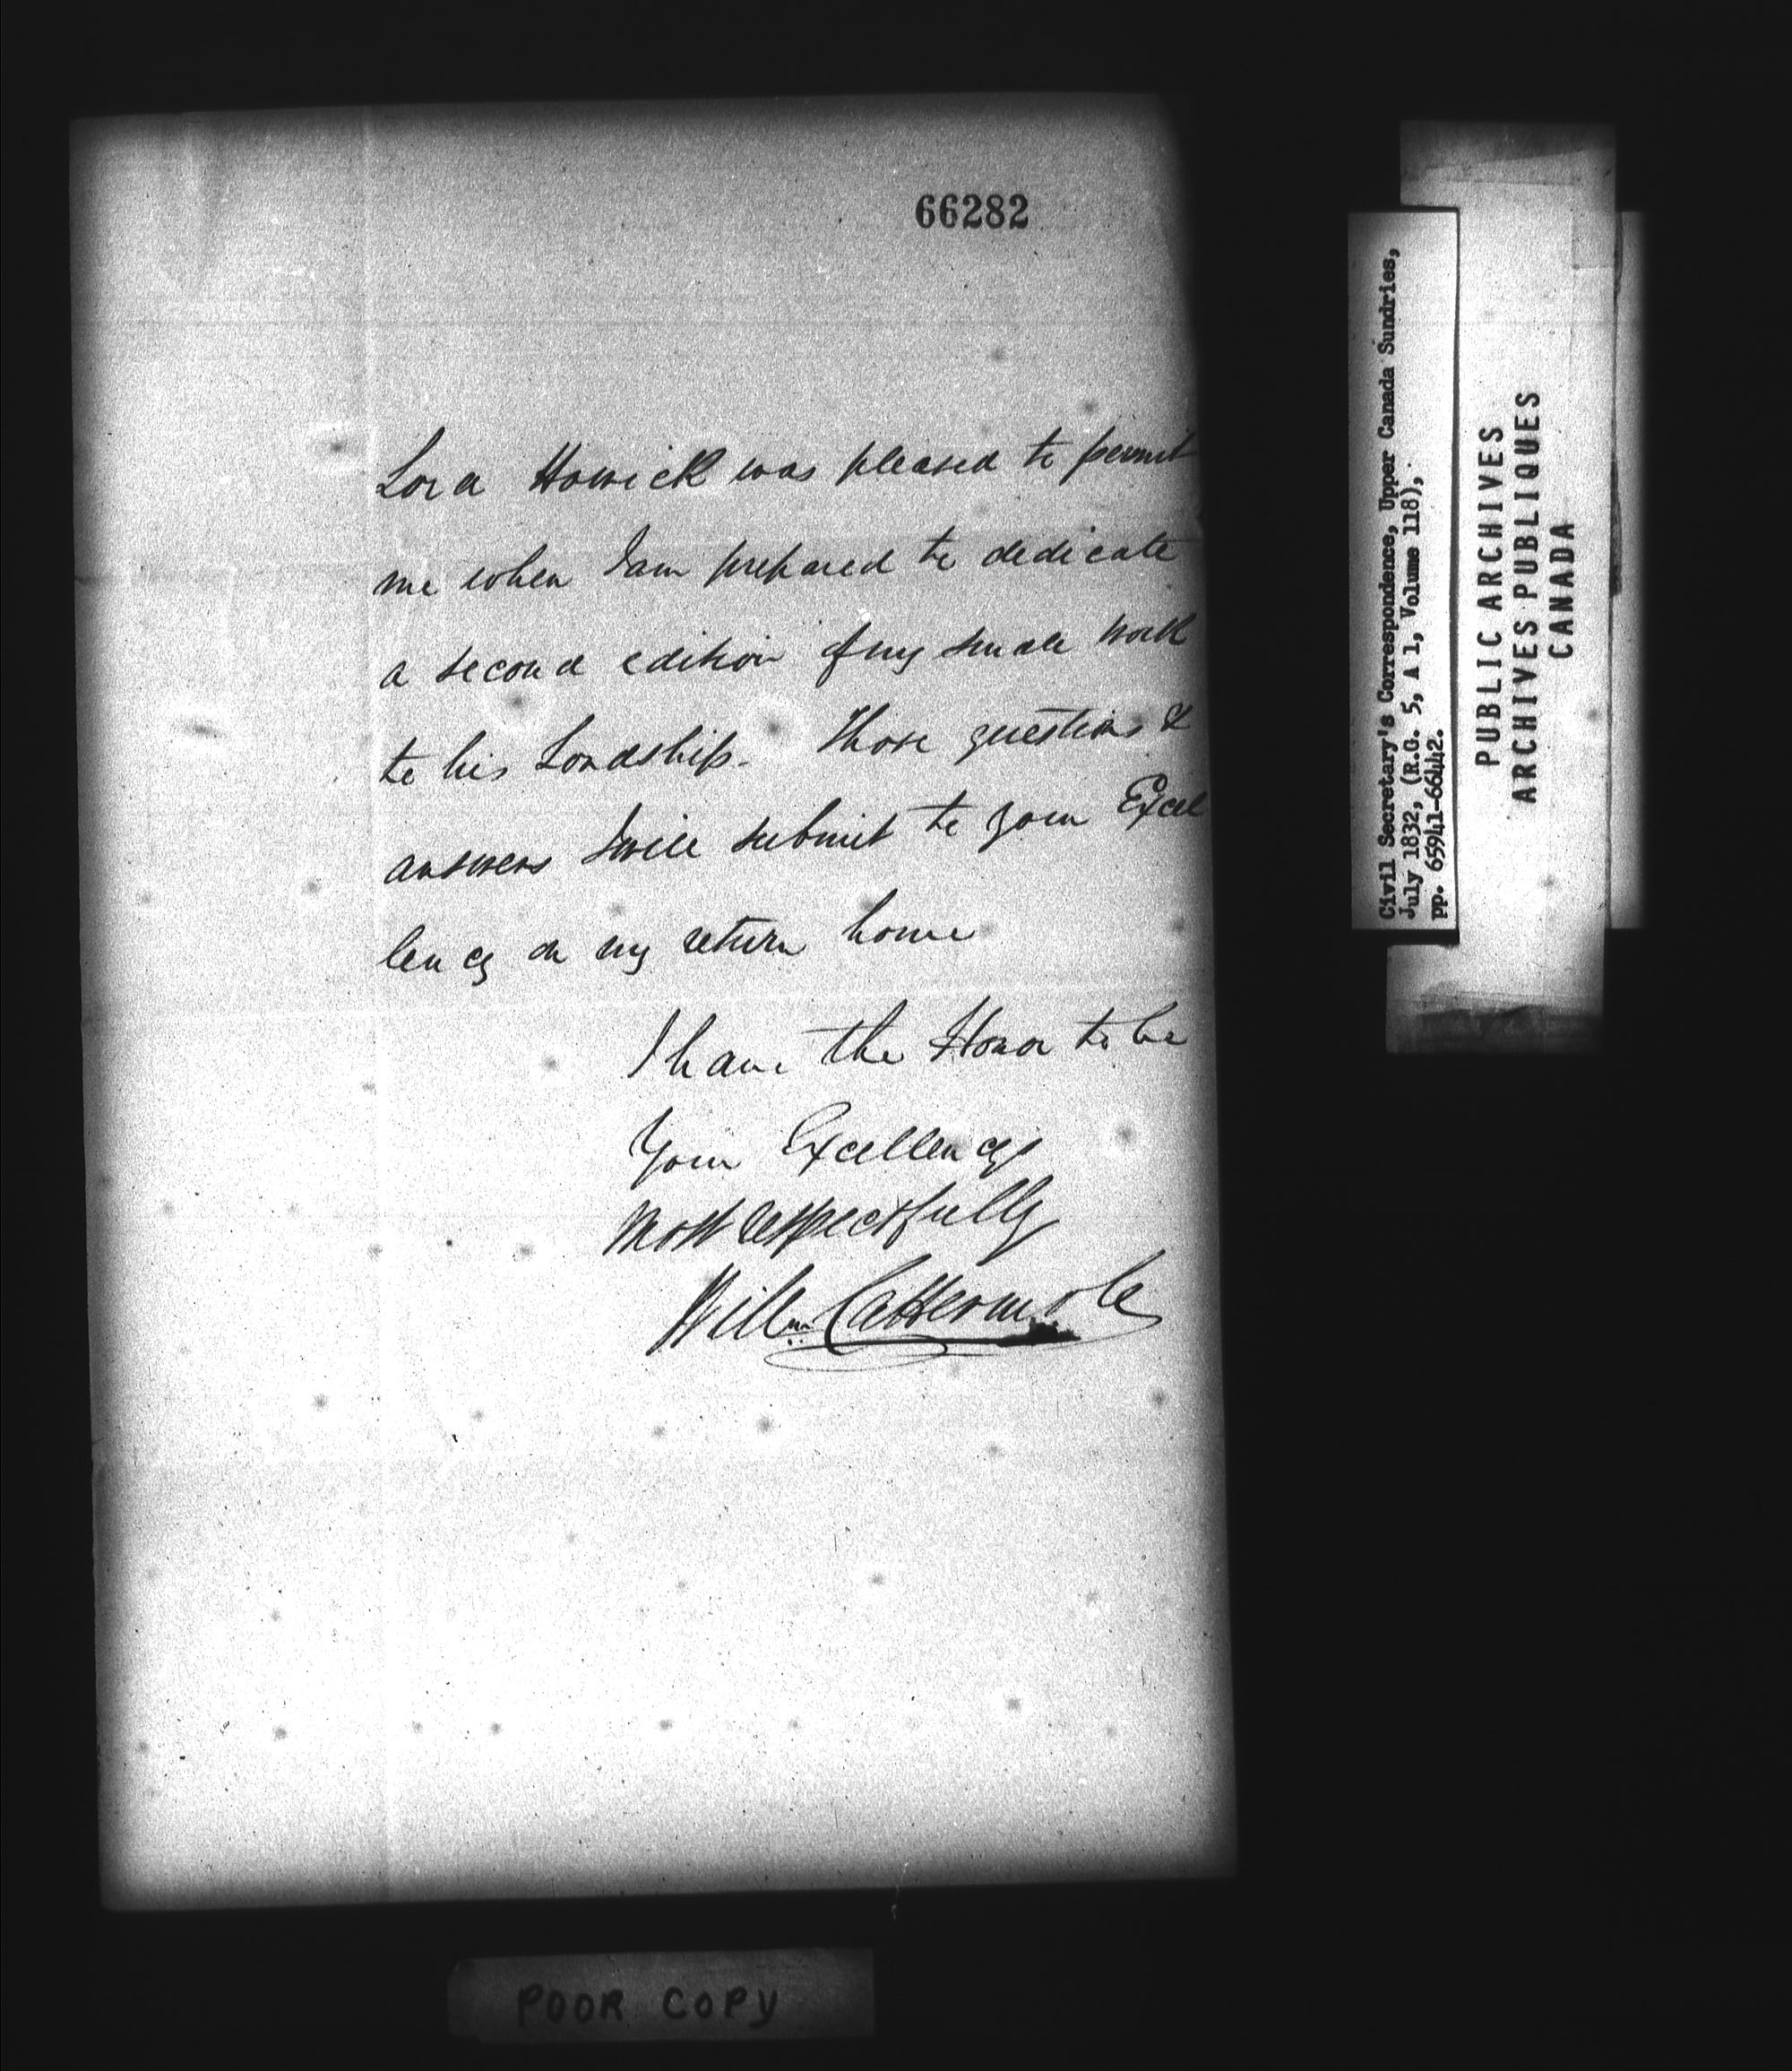 66282
Lord Howick was pleased to permit
me when I am prepared to dedicate
a second edition of my small work
to his Lordship. Those questions &
answers I will submit to your Excel
lency on my return home
I have the Honor to be
Your Excellencys
most respectfully
Willm Cattermole
Civil Secretary's Correspondence, Upper Canada Sundries,
July 1832, (R.G. 5, A 1, Volume 118),
pp. 65941-66442.
PUBLIC ARCHIVES
ARCHIVES PUBLIQUES
CANADA
POOR COPY